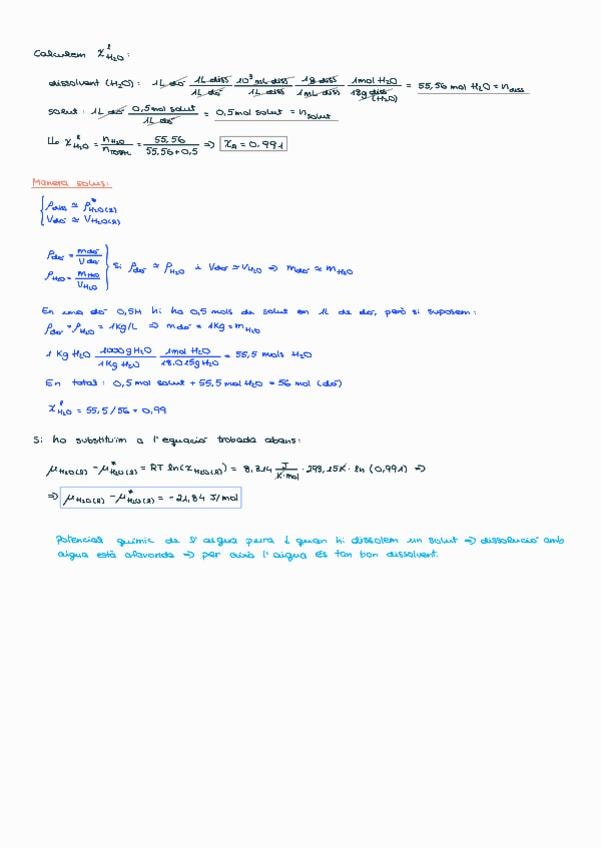 Calculem χˡH₂O:
dissolvent (H₂O): 1L dó · 1L diss / 1L dó · 10³ mL diss / 1L diss · 1g diss / 1mL diss · 1mol H₂O / 18g diss (H₂O) = 55,56 mol H₂O = n diss
solut: 1L dó · 0,5mol solut / 1L dó = 0,5mol solut = n solut
χˡH₂O = nH₂O / nTOTAL = 55,56 / 55,56+0,5 => χA = 0,991
Manera solus:
ρdis ≃ ρ*H₂O(l)
Vdó ≃ VH₂O(l)
ρdó = mdó / Vdó
ρH₂O = mH₂O / VH₂O
Si ρdó ≃ ρH₂O i Vdó ≃ VH₂O => mdó ≃ mH₂O
En una dó 0,5M hi ha 0,5 mols de solut en 1L de dó, però si suposem:
ρdó = ρH₂O = 1Kg/L => mdó = 1Kg = mH₂O
1 Kg H₂O · 1000g H₂O / 1Kg H₂O · 1mol H₂O / 18.015g H₂O = 55,5 mols H₂O
En total: 0,5 mol solut + 55,5 mol H₂O = 56 mol (dó)
χˡH₂O = 55,5/56 = 0,99
Si ho substituïm a l'equació trobada abans:
μH₂O(l) - μ*H₂O(l) = RT ln(χH₂O(l)) = 8,314 J/K·mol · 298,15K · ln (0,991) =>
=> μH₂O(l) - μ*H₂O(l) = -21,84 J/mol
Potencial químic de l'aigua pura ↓ quan hi dissolem un solut => dissolució amb
aigua està afavorida => per això l'aigua és tan bon dissolvent.